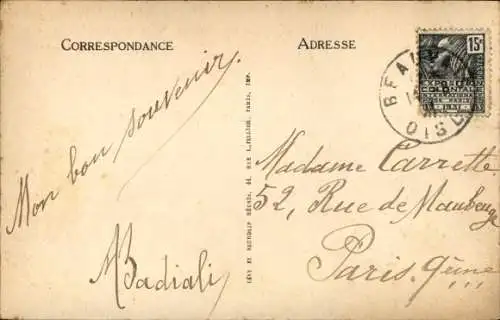 CORRESPONDANCE
ADRESSE
15c
POSTES
EXPOSITION
COLONIALE
INTERNATIONALE
DE PARIS
1931
BEAU
OISE
Mon bon souvenir.
Madiali
LÉVY ET NEURDEIN RÉUNIS, 44, RUE LETELLIER, PARIS, IMP.
Madame Carrette
52, Rue de Maubeuge
Paris. 9ème